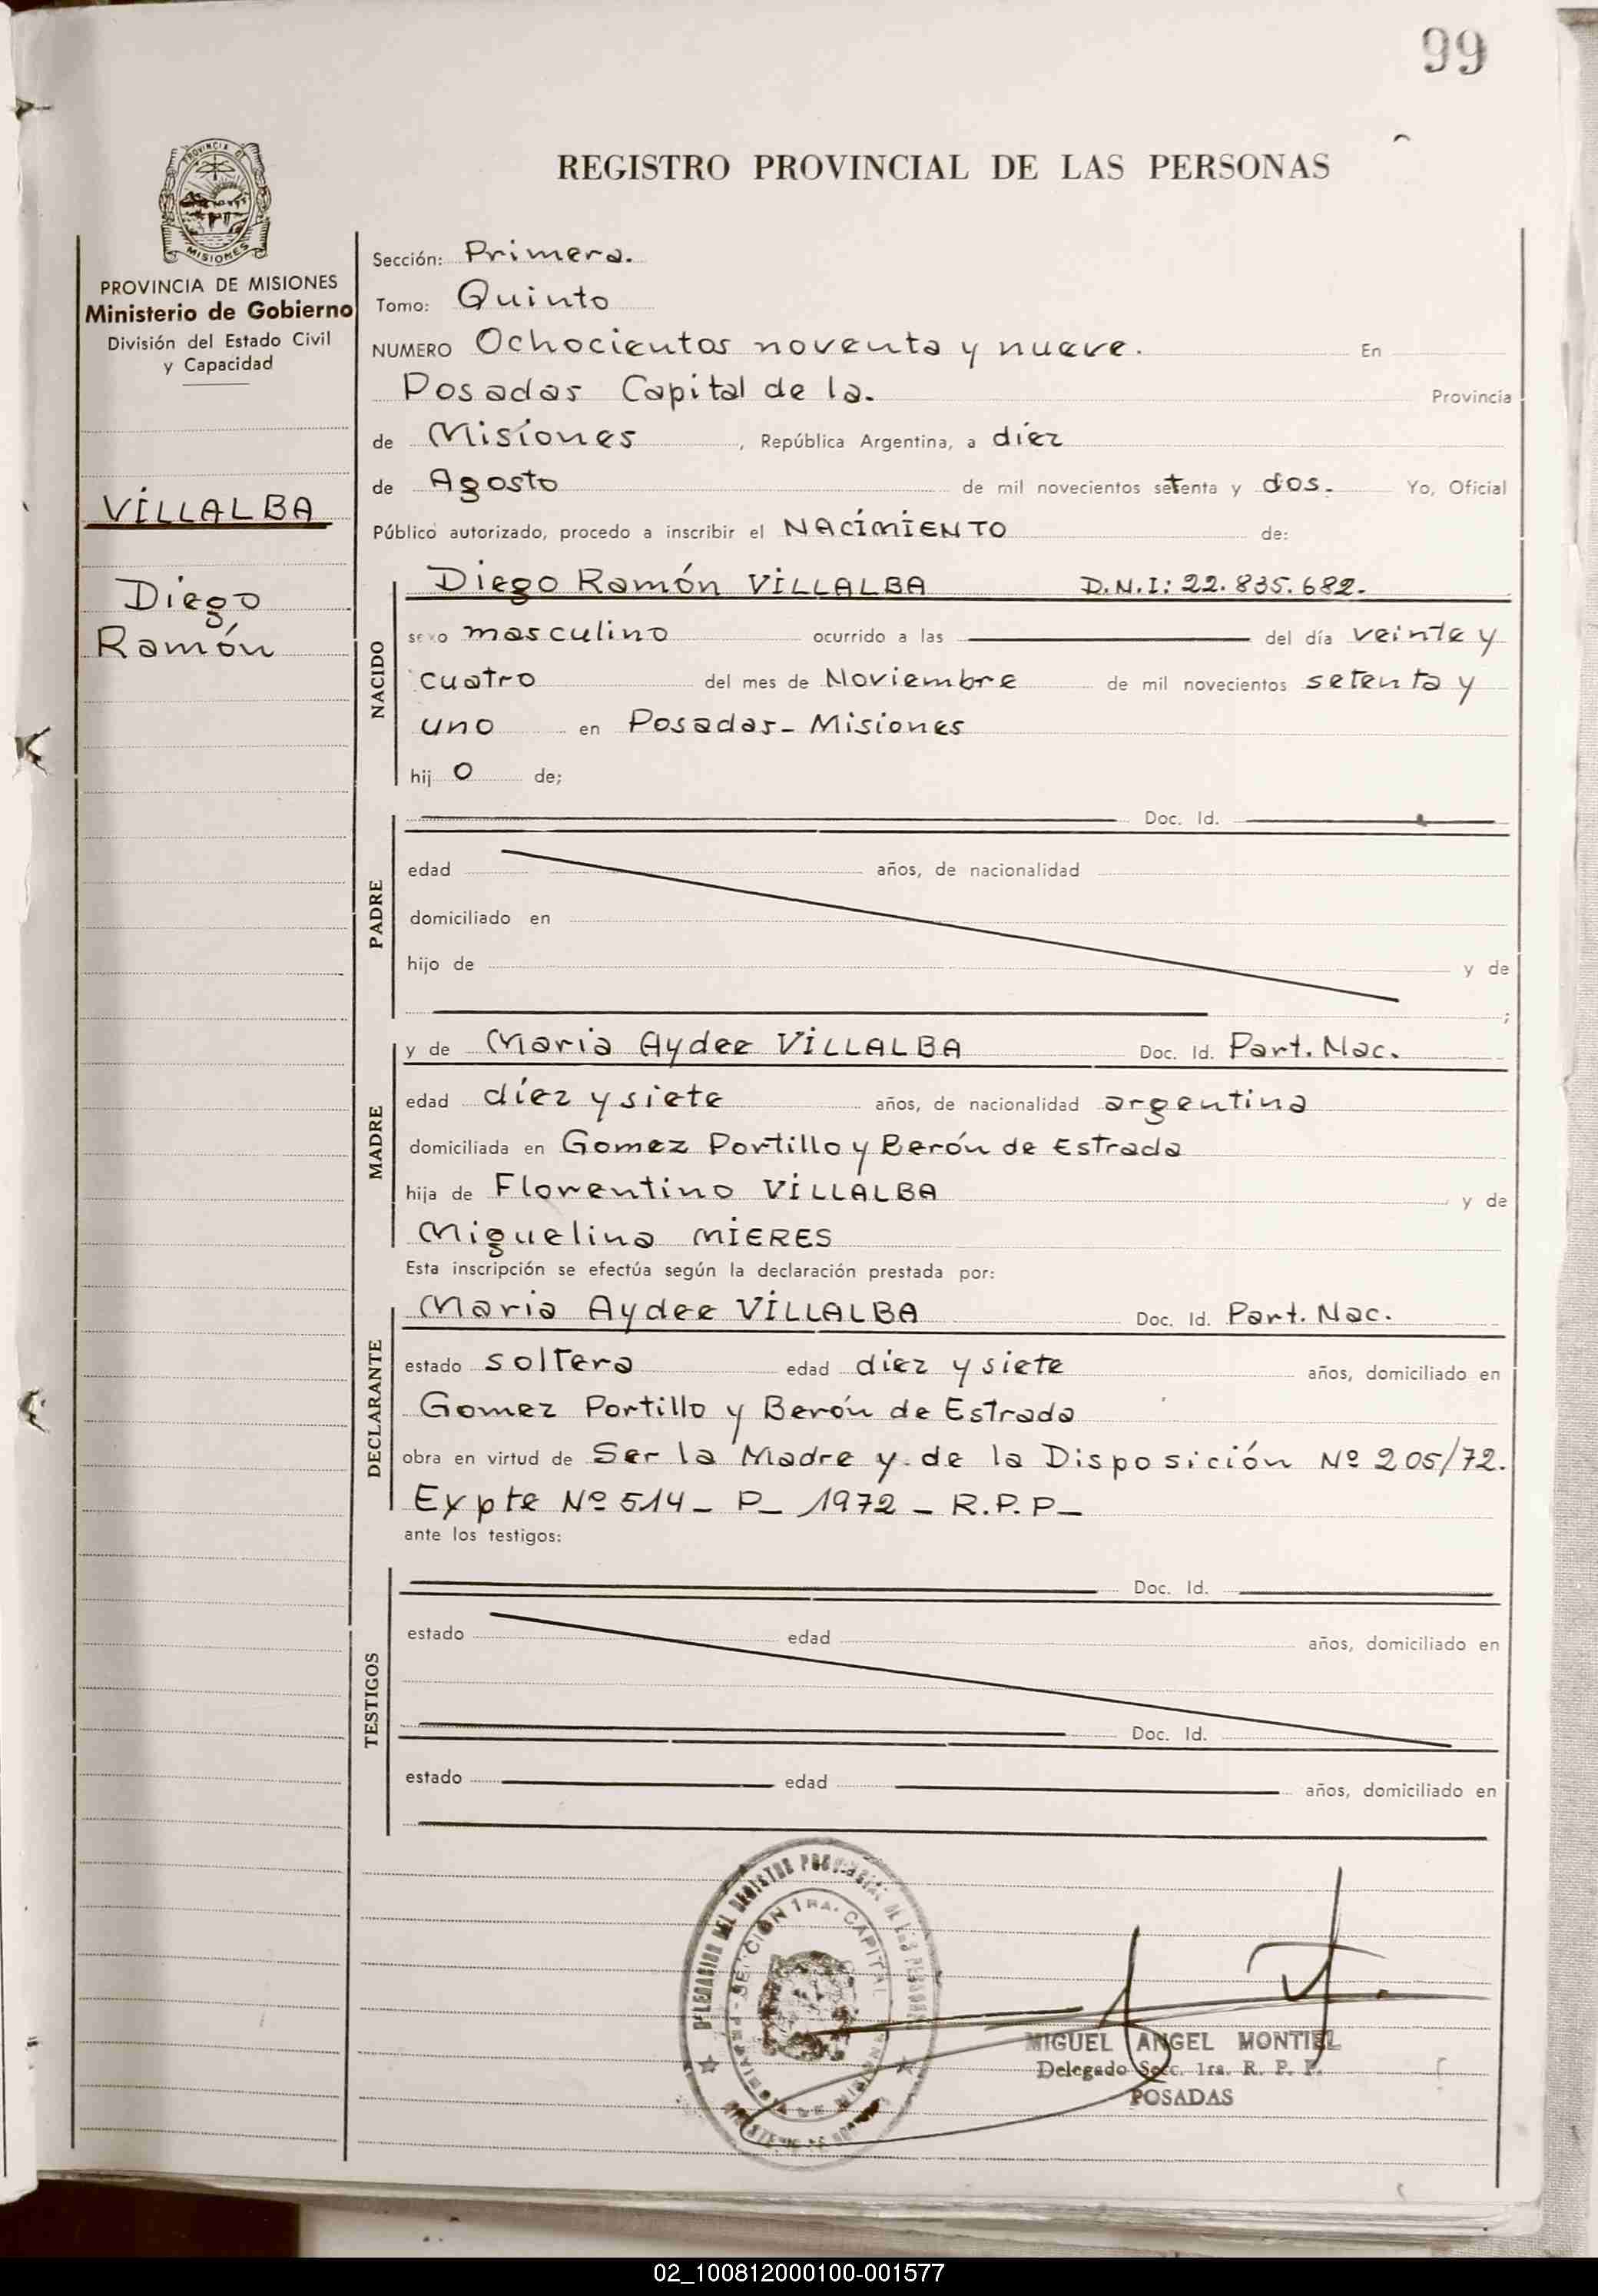 99
REGISTRO PROVINCIAL DE LAS PERSONAS
PROVINCIA DE
MISIONES
PROVINCIA DE MISIONES
Ministerio de Gobierno
División del Estado Civil
y Capacidad
VILLALBA
Diego
Ramón
Sección: Primera.
Tomo: Quinto
NUMERO Ochocientos noventa y nueve. En
Posadas Capital de la. Provincia
de Misiones, República Argentina, a diez
de Agosto de mil novecientos setenta y dos. Yo, Oficial
Público autorizado, procedo a inscribir el NACIMIENTO de:
NACIDO
Diego Ramón VILLALBA D.N.I: 22.835.682.
sexo masculino ocurrido a las del día veinte y
cuatro del mes de Noviembre de mil novecientos setenta y
uno en Posadas - Misiones
hijo de;
PADRE
Doc. Id.
edad años, de nacionalidad
domiciliado en
hijo de y de
;
MADRE
y de Maria Aydee VILLALBA Doc. Id. Part. Nac.
edad diez y siete años, de nacionalidad argentina
domiciliada en Gomez Portillo y Berón de Estrada
hija de Florentino VILLALBA y de
Miguelina MIERES
Esta inscripción se efectúa según la declaración prestada por:
DECLARANTE
Maria Aydee VILLALBA Doc. Id. Part. Nac.
estado soltera edad diez y siete años, domiciliado en
Gomez Portillo y Berón de Estrada
obra en virtud de Ser la Madre y de la Disposición Nº 205/72.
Expte Nº 514 - P - 1972 - R.P.P -
ante los testigos:
TESTIGOS
Doc. Id.
estado edad años, domiciliado en
Doc. Id.
estado edad años, domiciliado en
DEL REGISTRO PROVINCIAL DE LAS PERSONAS
SECCION 1RA. CAPITAL
MIGUEL ANGEL MONTIEL
Delegado Secc. 1ra. R. P. P.
POSADAS
02_100812000100-001577